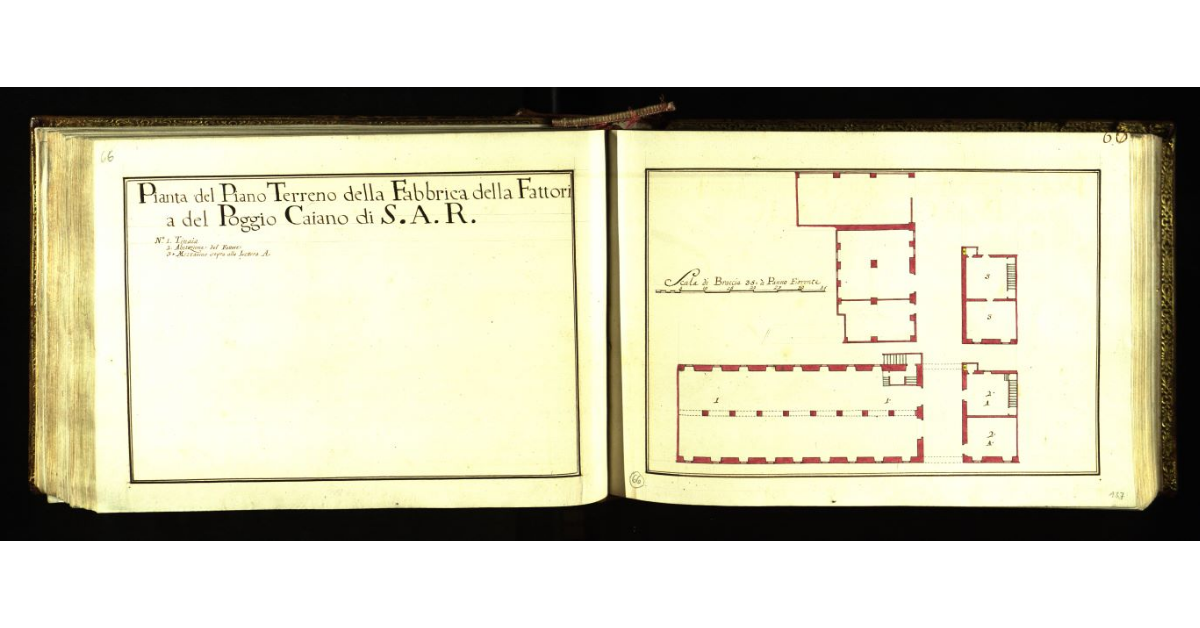 66
Pianta del Piano Terreno della Fabbrica della Fattori
a del Poggio Caiano di S. A. R.
N.º 1. Tinaia
2. Abitazione del
3. Mezzanino sopra alla Lettera A.
60
Scala di Braccia di Panno Fiorent.
3
3
1
1
2
A
2
A
66
127